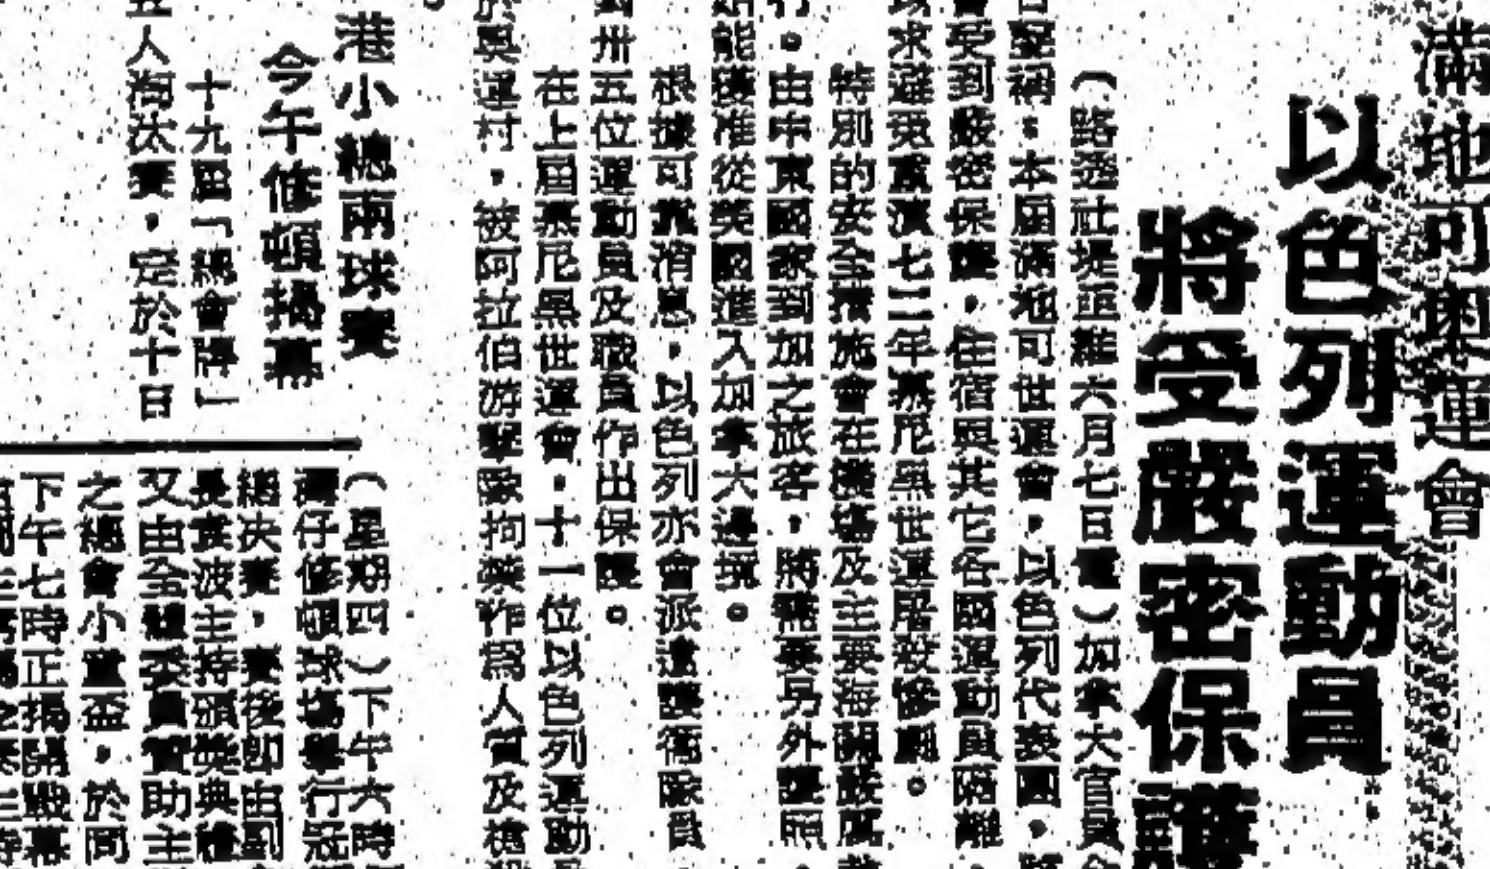 滿地可奧運會
以色列運動員
將受嚴密保護
（路透社堤亞維六月七日電）加拿大官員
堅稱：本屆滿地可世運會，以色列代表團，
會受到嚴密保護，住宿與其它各國運動員隔離
求避免重演七二年慕尼黑世運屠殺慘劇。
特別的安全措施會在機場及主要海關嚴厲
行。由中東國家到加之旅客，將需要另外護照
能獲准從英國進入加拿大邊境。
根據可靠消息，以色列亦會派遣護衛隊員
卅五位運動員及職員作出保護。
在上屆慕尼黑世運會，十一位以色列運動
於奧運村，被阿拉伯游擊隊拘禁作爲人質及槍
港小總兩球賽
今午修頓揭幕
十九屆「總會牌」
人淘汰賽，定於十日
（星期四）下午六時
灣仔修頓球場舉行冠
總决賽，賽後卽由副
長袁波主持頒獎典禮
又由全體委員賛助主
之總會小童盃，於同
下午七時正揭開戰幕